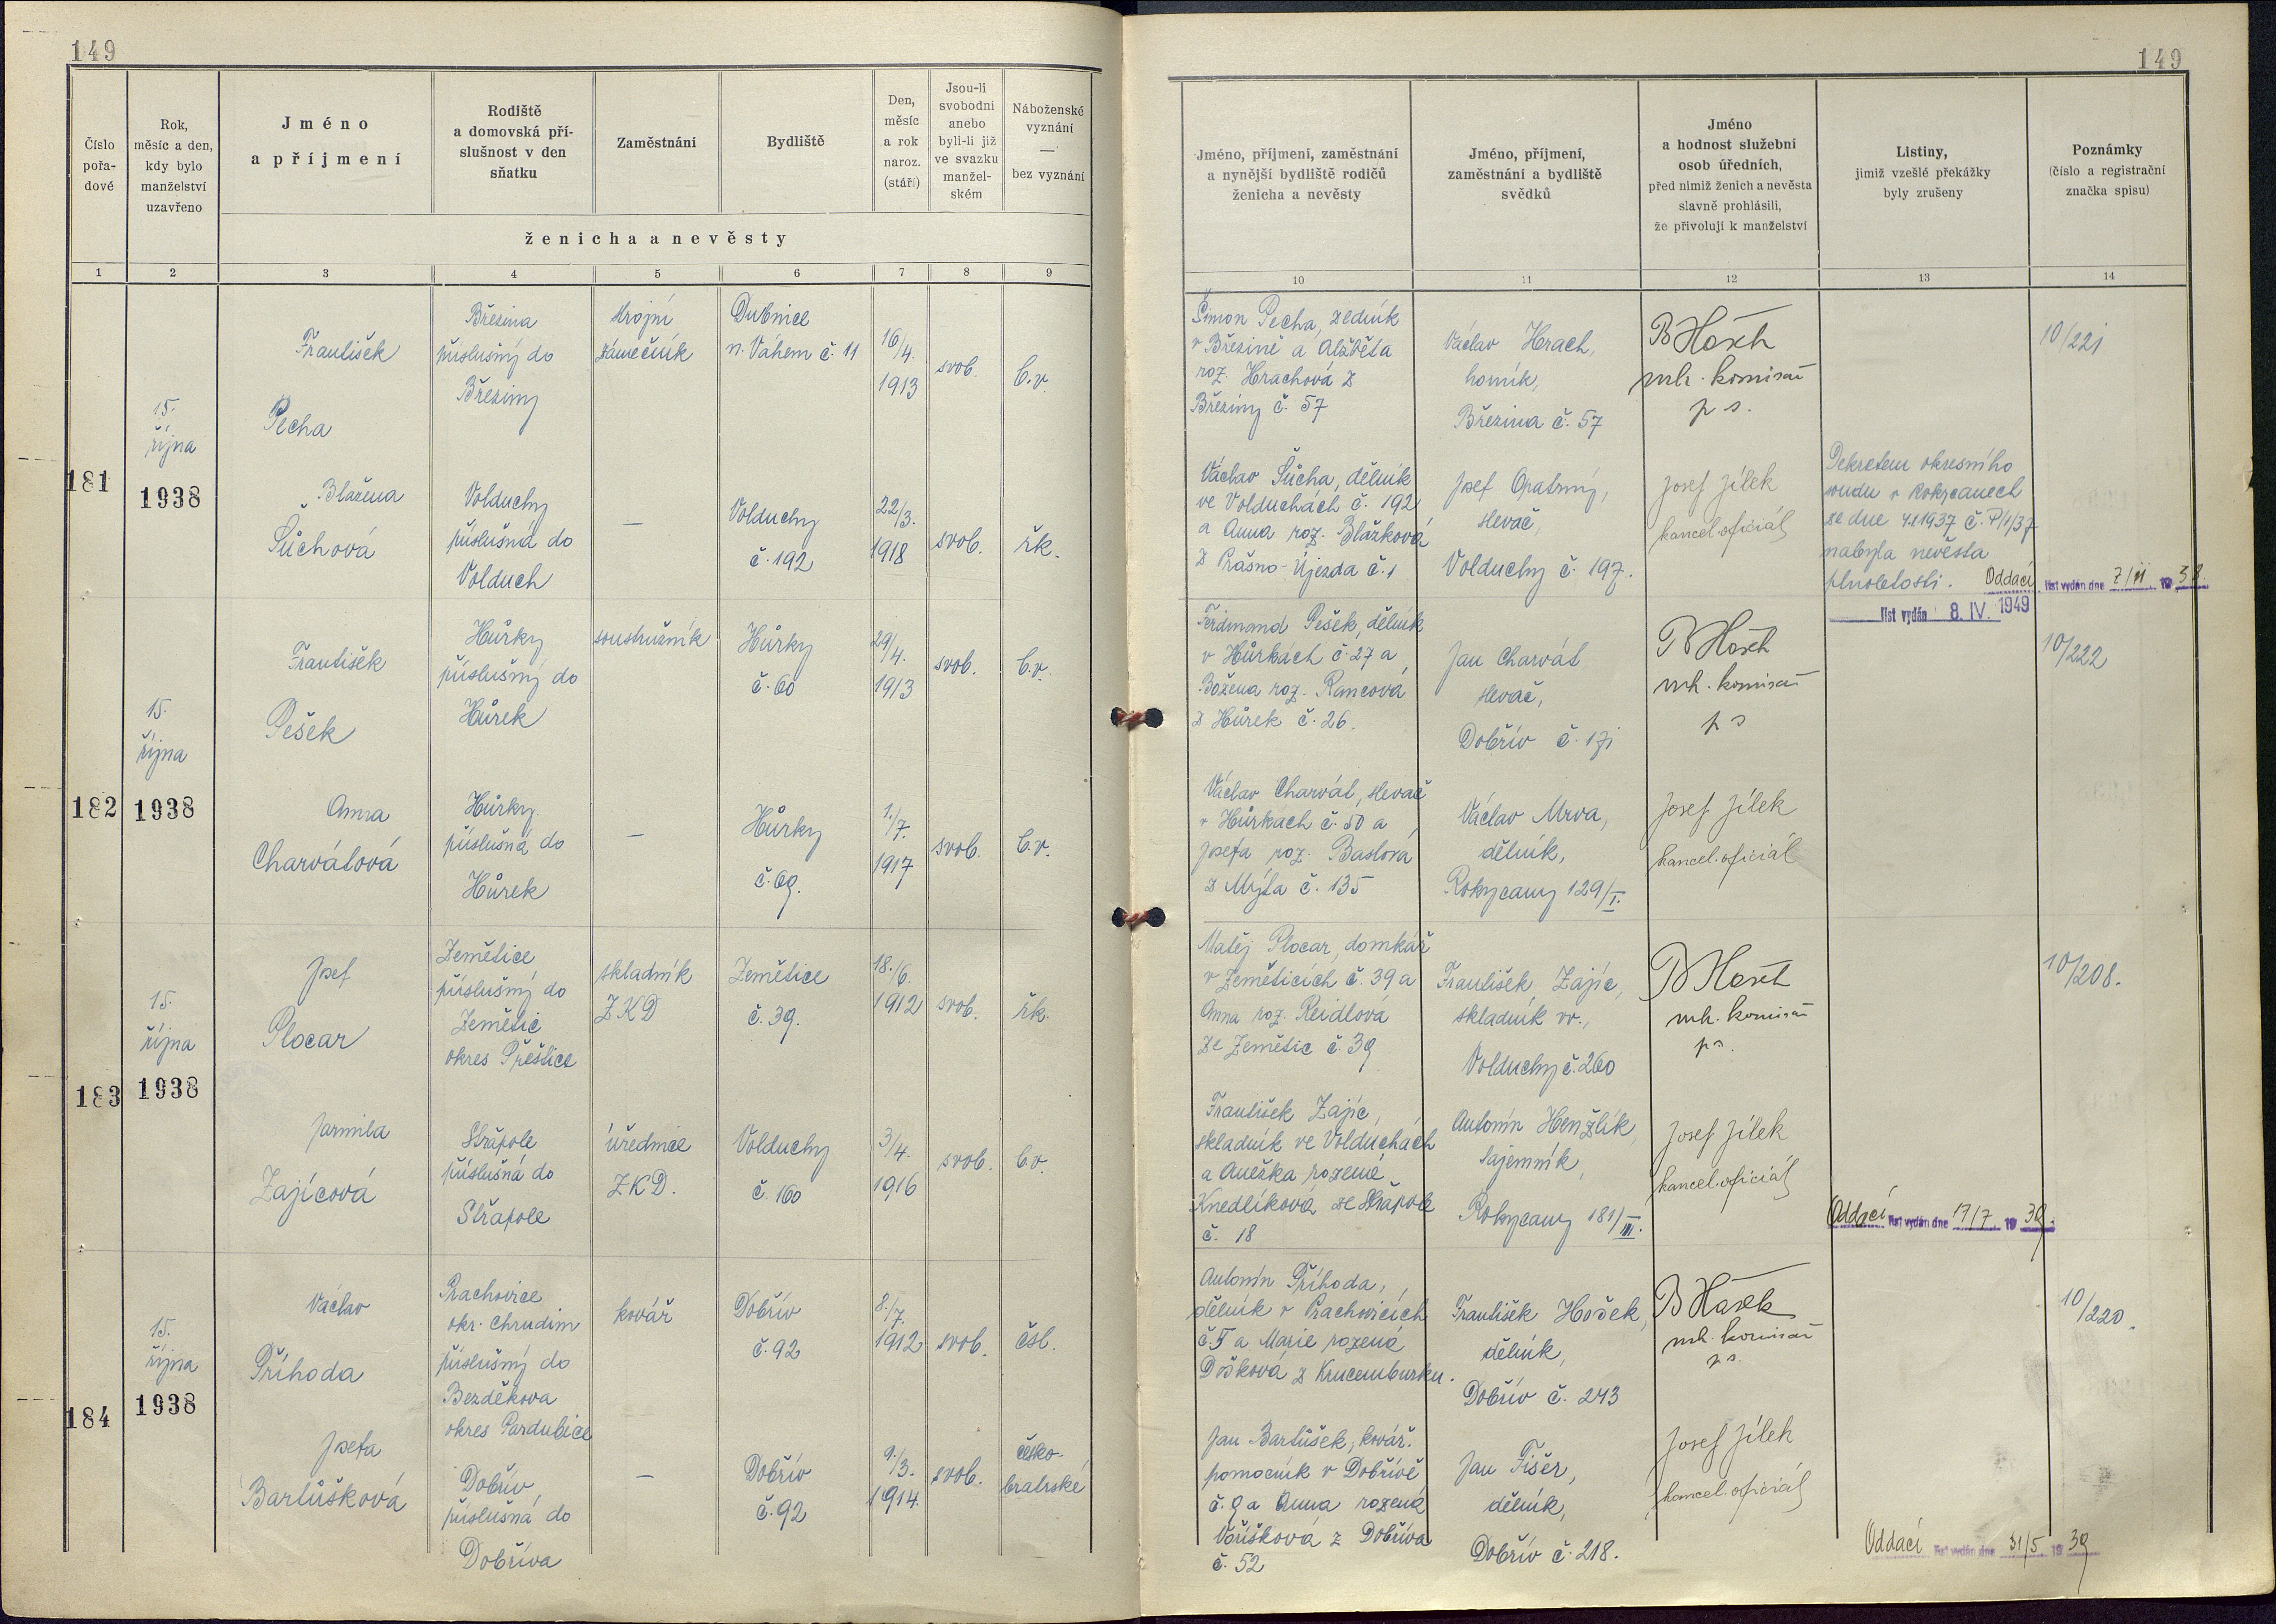 149
149
Číslo
pořa-
dové
Rok,
měsíc a den,
kdy bylo
manželství
uzavřeno
Jméno
a příjmení
Rodiště
a domovská pří-
slušnost v den
sňatku
Zaměstnání
Bydliště
Den,
měsíc
a rok
naroz.
(stáří)
Jsou-li
svobodni
anebo
byli-li již
ve svazku
manžel-
ském
Náboženské
vyznání
—
bez vyznání
ženicha a nevěsty
Jméno, příjmení, zaměstnání
a nynější bydliště rodičů
ženicha a nevěsty
Jméno, příjmení,
zaměstnání a bydliště
svědků
Jméno
a hodnost služební
osob úředních,
před nimiž ženich a nevěsta
slavně prohlásili,
že přivolují k manželství
Listiny,
jimiž vzešlé překážky
byly zrušeny
Poznámky
(číslo a registrační
značka spisu)
1 2 3 4 5 6 7 8 9
10 11 12 13 14
181
15.
října
1938
František
Pecha
Březina
příslušný do
Březiny
strojní
zámečník
Dubnice
n. Váhem č. 11
16/4.
1913
svob.
b.v.
Šimon Pecha, zedník
v Březině a Alžběta
roz. Hrachová z
Březiny č. 57
Václav Hrach,
horník,
Březina č. 57
mh. komisař
p s.
10/221
Blažena
Šůchová
Volduchy
příslušná do
Volduch
—
Volduchy
č. 192
22/3.
1918
svob.
řk.
Václav Šůcha, dělník
ve Volduchách č. 192
a Anna roz. Blažková
z Prašno-Újezda č. 1
Josef Opatrný,
slevač,
Volduchy č. 197.
Josef Jílek
kancel. oficiál
Dekretem okresního
soudu v Rokycanech
ze dne 4.1.1937 č. P/1/37
nabyla nevěsta
plnoletosti.
Oddací list vydán dne 7/11 1938.
list vydán 8. IV. 1949
182
15.
října
1938
František
Pešek
Hůrky
příslušný do
Hůrek
soustružník
Hůrky
č. 60
29/4.
1913
svob.
b.v.
Ferdinand Pešek, dělník
v Hůrkách č. 27 a
Božena roz. Rancová
z Hůrek č. 26.
Jan Charvát
slevač,
Dobřív č. 171
mh. komisař
p s
10/222
Anna
Charvátová
Hůrky
příslušná do
Hůrek
—
Hůrky
č. 69.
1./7.
1917
svob.
b.v.
Václav Charvát, slevač
v Hůrkách č. 50 a
Josefa roz. Baslová
z Mýta č. 135
Václav Mrva,
dělník,
Rokycany 129/I.
Josef Jílek
kancel. oficiál
183
15.
října
1938
Josef
Plocar
Zemětice
příslušný do
Zemětic
okres Přeštice
skladník
ZKD
Zemětice
č. 39.
18./6.
1912
svob.
řk.
Matěj Plocar, domkář
v Zeměticích č. 39 a
Anna roz. Reidlová
ze Zemětic č. 39
František Zajíc,
skladník vv.,
Volduchy č. 260
mh. komisař
p s.
10/208.
Jarmila
Zajícová
Střapole
příslušná do
Střapole
úřednice
ZKD.
Volduchy
č. 160
3/4.
1916
svob.
b.v.
František Zajíc,
skladník ve Volduchách
a Anežka rozená
Knedlíková ze Střapole
č. 18
Antonín Henžlík,
tajemník,
Rokycany 181/III.
Josef Jílek
kancel. oficiál
Oddací list vydán dne 17/7 1939.
184
15.
října
1938
Václav
Příhoda
Prachovice
okr. Chrudim
příslušný do
Bezděkova
okres Pardubice
kovář
Dobřív
č. 92
8./7.
1912
svob.
čsl.
Antonín Příhoda,
dělník v Prachovicích
č. 5 a Marie rozená
Došková z Krucemburku.
František Hošek,
dělník,
Dobřív č. 243
mh. komisař
p s.
10/220.
Josefa
Bartůšková
Dobřív
příslušná do
Dobříva
—
Dobřív
č. 92
9./3.
1914.
svob.
česko-
bratrské
Jan Bartůšek, kovář.
pomocník v Dobřívě
č. 9 a Anna rozená
Voříšková z Dobříva
č. 52
Jan Fišer,
dělník,
Dobřív č. 218.
Josef Jílek
kancel. oficiál
Oddací list vydán dne 31/5 1939